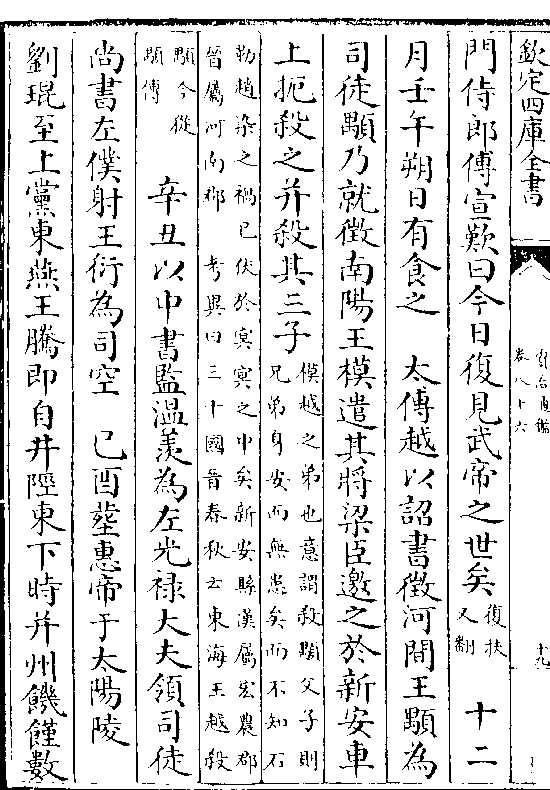 欽定四庫全書
資治通鑑
卷八十六
十九
門侍郎傅宣歎曰今日復見武帝之世矣復扶又翻 十二
月壬午朔日有食之 太傅越以詔書徵河間王顒為
司徒顒乃就徵南陽王模遣其將梁臣邀之於新安車
上扼殺之并殺其三子模越之弟也意謂殺顒父子則兄弟身安而無患矣而不知石
勒趙染之禍已伏於冥冥之中矣新安縣漢屬宏農郡晉屬河南郡 考異曰三十國晉春秋云東海王越殺
顒今從顒傳 辛丑以中書監溫羨為左光祿大夫領司徒
尚書左僕射王衍為司空 己酉葬惠帝于太陽陵
劉琨至上黨東燕王騰即自井陘東下時并州饑饉數